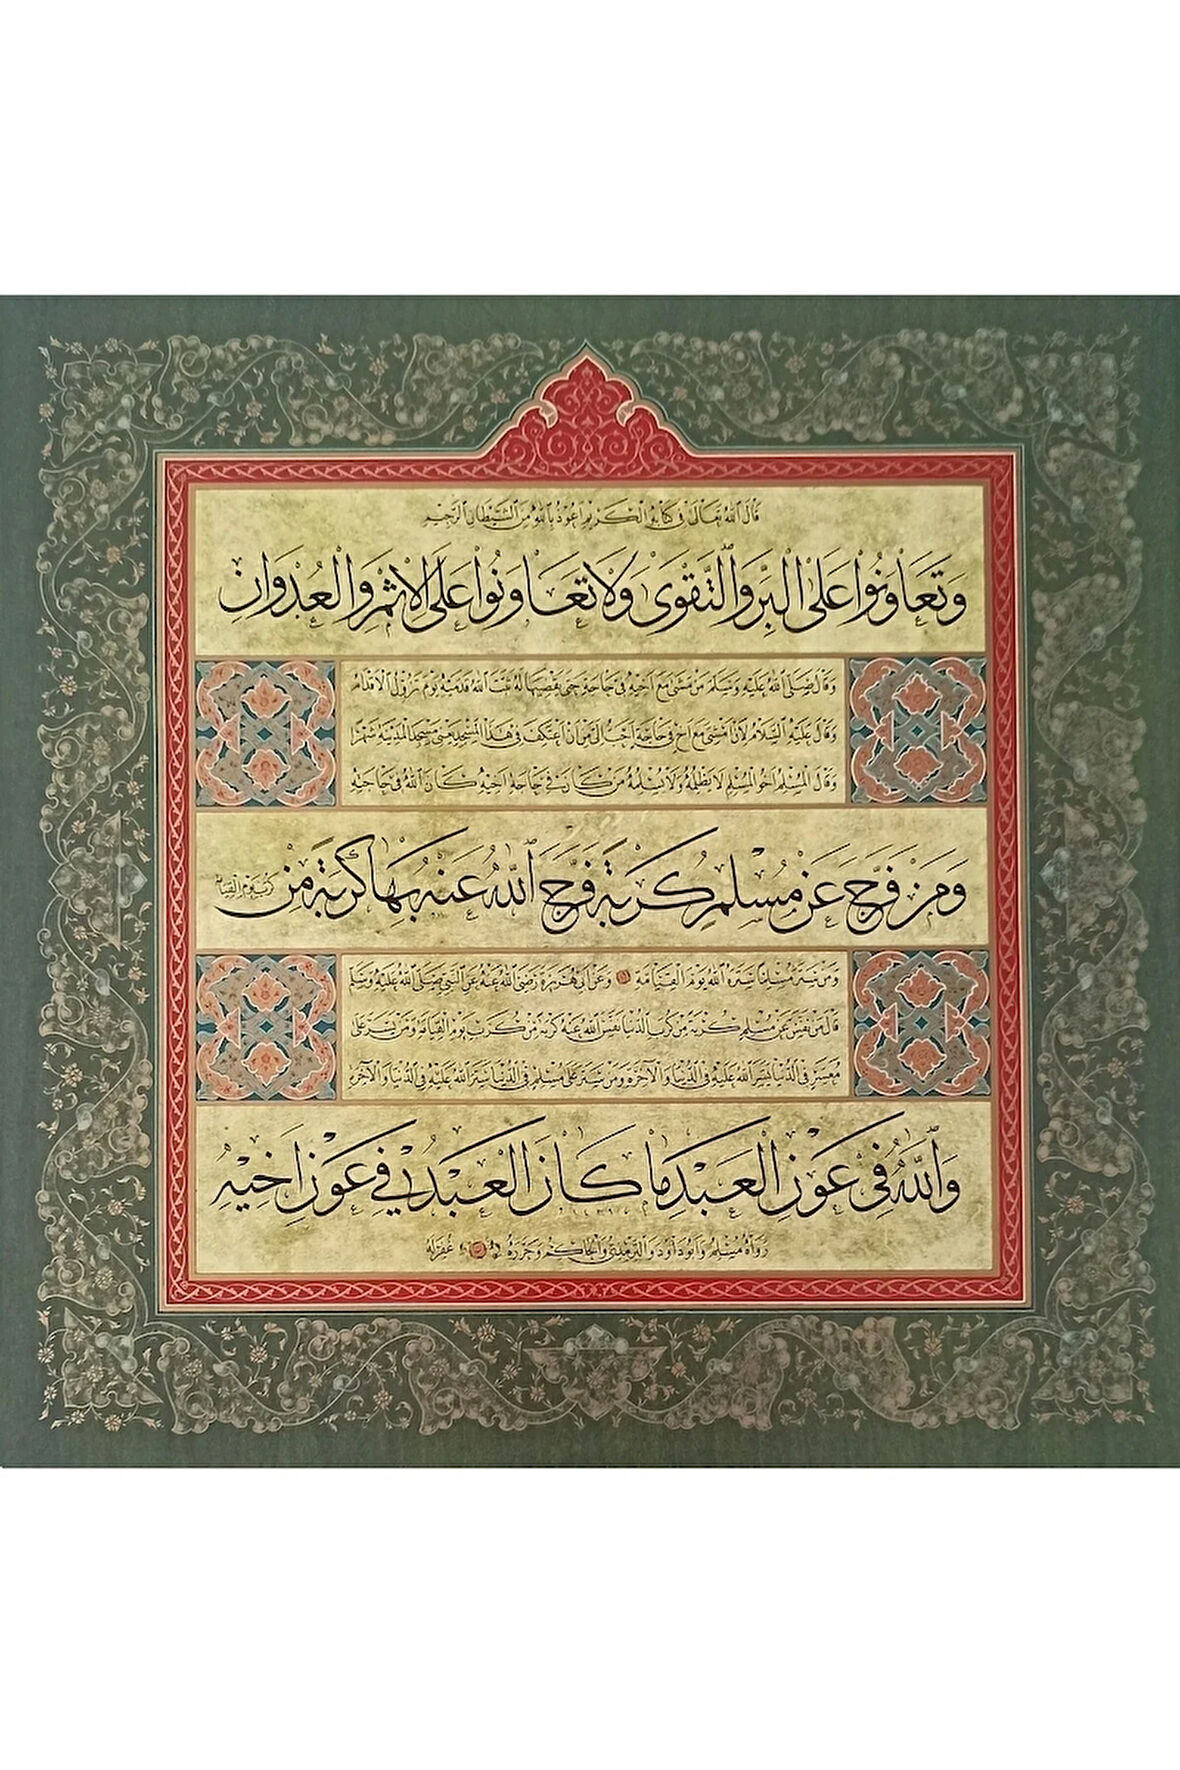 قَالَ اللهُ تَعَالٰى فِى كِتَابِهِ الْكَرِيمِ اَعُوذُ بِاللهِ مِنَ الشَّيْطَانِ الرَّجِيمِ
وَتَعَاوَنُوا عَلَى الْبِرِّ وَالتَّقْوٰى وَلَا تَعَاوَنُوا عَلَى الْاِثْمِ وَالْعُدْوَانِ
وَقَالَ صَلَّى اللهُ عَلَيْهِ وَسَلَّمَ مَنْ مَشٰى مَعَ اَخِيهِ فِى حَاجَةٍ حَتّٰى يَقْضِيَهَا لَهُ ثَبَّتَ اللهُ قَدَمَيْهِ يَوْمَ تَزُولُ الْاَقْدَامُ
وَقَالَ عَلَيْهِ السَّلَامُ لَاَنْ اَمْشِىَ مَعَ اَخٍ فِى حَاجَةٍ اَحَبُّ اِلَىَّ مِنْ اَنْ اَعْتَكِفَ فِى هٰذَا الْمَسْجِدِ يَعْنِى مَسْجِدَ الْمَدِينَةِ شَهْرًا
وَقَالَ الْمُسْلِمُ اَخُو الْمُسْلِمِ لَا يَظْلِمُهُ وَلَا يُسْلِمُهُ مَنْ كَانَ فِى حَاجَةِ اَخِيهِ كَانَ اللهُ فِى حَاجَتِهِ
وَمَنْ فَرَّجَ عَنْ مُسْلِمٍ كُرْبَةً فَرَّجَ اللهُ عَنْهُ بِهَا كُرْبَةً مِنْ كُرَبِ يَوْمِ الْقِيَامَةِ
وَمَنْ سَتَرَ مُسْلِمًا سَتَرَهُ اللهُ يَوْمَ الْقِيَامَةِ وَعَنْ اَبِى هُرَيْرَةَ رَضِىَ اللهُ عَنْهُ عَنِ النَّبِىِّ صَلَّى اللهُ عَلَيْهِ وَسَلَّمَ
قَالَ مَنْ نَفَّسَ عَنْ مُسْلِمٍ كُرْبَةً مِنْ كُرَبِ الدُّنْيَا نَفَّسَ اللهُ عَنْهُ كُرْبَةً مِنْ كُرَبِ يَوْمِ الْقِيَامَةِ وَمَنْ يَسَّرَ عَلٰى
مُعْسِرٍ فِى الدُّنْيَا يَسَّرَ اللهُ عَلَيْهِ فِى الدُّنْيَا وَالْاٰخِرَةِ وَمَنْ سَتَرَ عَلٰى مُسْلِمٍ فِى الدُّنْيَا سَتَرَ اللهُ عَلَيْهِ فِى الدُّنْيَا وَالْاٰخِرَةِ
وَاللهُ فِى عَوْنِ الْعَبْدِ مَا كَانَ الْعَبْدُ فِى عَوْنِ اَخِيهِ
رَوَاهُ مُسْلِمٌ وَاَبُو دَاوُدَ وَالتِّرْمِذِىُّ وَالْحَاكِمُ وَحَرَّرَهُ غُفِرَ لَهُ